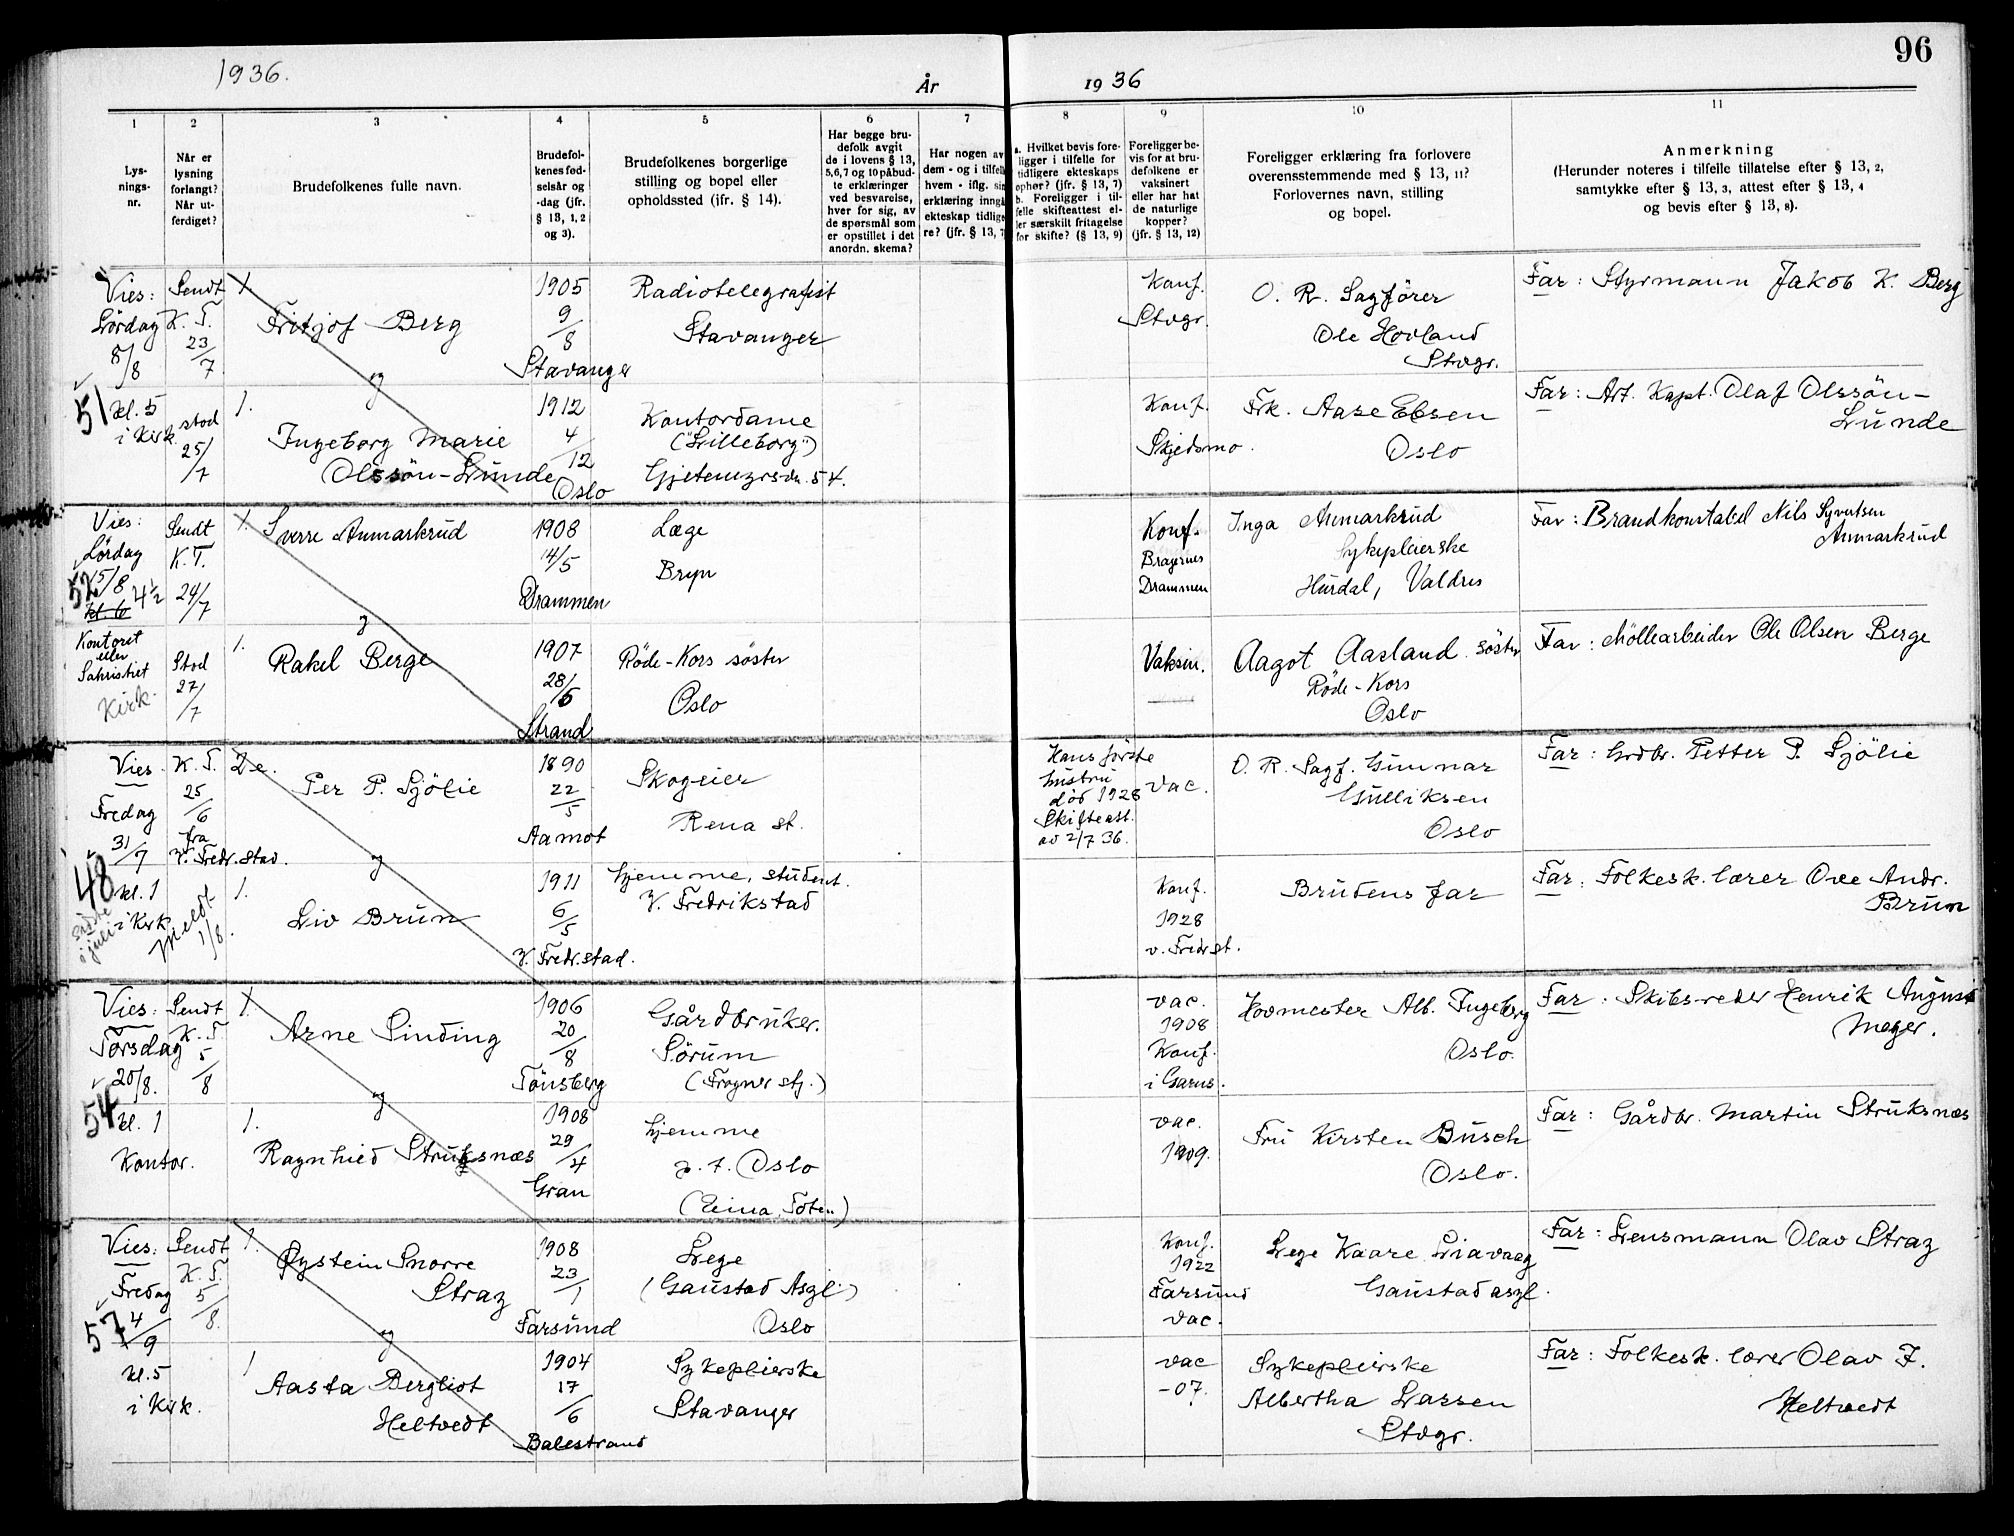 1936.
År
1936
96
1
2
3
4
5
6
7
8
9
10
11
Lys-
nings-
nr.
Når er
lysning
forlangt?
Når ut-
ferdiget?
Brudefolkenes fulle navn.
Brudefol-
kenes fød-
selsår og
-dag (jfr.
§ 13, 1, 2
og 3).
Brudefolkenes borgerlige
stilling og bopel eller
opholdssted (jfr. § 14).
Har begge bru-
defolk avgit
de i lovens § 13,
5,6,7 og 10 påbud-
te erklæringer
ved besvarelse,
hver for sig, av
de spørsmål som
er opstillet i det
anordn. skema?
Har nogen av
dem - og i tilfell
hvem - iflg. sin
erklæring inngå
ekteskap tidlige
re? (jfr. § 13, 7
a. Hvilket bevis fore-
ligger i tilfelle for
tidligere ekteskaps
ophør? (jfr. § 13, 7)
b. Foreligger i til-
felle skifteattest el-
ler særskilt fritagelse
for skifte? (§ 13, 9)
Foreligger be-
vis for at bru-
defolkene er
vaksinert
eller har hat
de naturlige
kopper?
(jfr. § 13, 12)
Foreligger erklæring fra forlovere
overensstemmende med § 13, 11?
Forlovernes navn, stilling
og bopel.
Anmerkning
(Herunder noteres i tilfelle tillatelse efter § 13, 2,
samtykke efter § 13, 3, attest efter § 13, 4
og bevis efter § 13, 8).
Vies:
Lördag
8/8
51
kl. 5
i Kirk
Sendt
K. T.
23/7
stod
25/7
1.
Fritjof Berg
og
1.
Ingeborg Marie
Olssön-Lunde
1905
9/8
Stavanger
1912
4/12
Oslo
Radiotelegrafist
Stavanger
Kontordame
("Lilleborg")
Gjetemyrsvn. 54.
Konf.
Stvgr.
Konf.
Skjedsmo.
O. R. Sagförer
Ole Hovland
Stvgr.
Frk. Aase Ebsen
Oslo
Far: Styrmann Jakob K. Berg
Far: Art. Kapt. Olaf Olssön-
Lunde
Vies:
Lördag
15/8
52
kl. 6 4 1/2
Kontoret
eller
Sakristiet
Kirk.
Sendt
K. T.
24/7
Stod
27/7
1.
Sverre Aumarkrud
og
1.
Rakel Berge
1908
14/5
Drammen
1907
28/5
Strand
Læge
Bryn
Røde-Kors söster
Oslo
Konf.
Bragernes
Drammen
Vaksin.
Inga Aumarkrud
Sykepleierske
Hurdal, Valdres
Aagot Aasland söster
Røde-Kors
Oslo
Far: Brandkonstabel Nils Syvertsen
Aumarkrud
Far: Möllearbeider Ole Olsen Berge
Vies
Fredag
31/7
48
kl. 1
i Kirk
sidste
i juli
K. T.
25/6
fra
V. Fredr.stad.
Meldt
1/8.
2e.
Per P. Sjölie
og
1.
Liv Brun
1890
22/5
Aamot
1911
6/5
V. Fredr.stad.
Skogeier
Rena st.
hjemme, student.
V. Fredrikstad
Hans förste
hustru
död 1928
Skifteatt.
av 2/7 36.
vac.
Konf.
1928
v. Fredr st.
O. R. Sagf. Gunnar
Gulliksen
Oslo
Brudens far
Far: Grdbr. Petter P. Sjölie
Far: Folkesk. lærer Ove Andr.
Brun
Vies:
Torsdag
20/8.
54
kl. 1
Kontor.
Sendt
K. T.
5/8
1.
Arne Sinding
og
1.
Ragnhild Struksnæs
1906
20/8
Tönsberg
1908
29/4
Gran
Gårdbruker.
Sörum
(Frogner stj.)
hjemme
p. t. Oslo
(Eina, Toten)
vac.
1908
Konf.
i Garns.
vac.
1909.
Hovmester Alb. Ingeberg
Oslo.
Fru Kirsten Busch
Oslo.
Far: Skibsreder Henrik August
Meyer.
Far: Gårdbr. Martin Struksnæs
Vies:
Fredag
4/9
57
kl. 5
i Kirk.
Sendt
K. T.
5/8.
1.
Øystein Snorre
Stray
og
1
Aasta Bergliot
Heltvedt
1908
23/1
Farsund
1904
17/6
Balestrand
Lege
(Gaustad Asyl)
Oslo
Sykepleierske
Stavanger
Konf.
1922
Farsund
vac.
vac
-07.
Lege Kaare Liavaag
Gaustad asyl.
Sykepleierske
Albertha Larsen
Stvgr.
Far: Lensmann Olav Stray
Far: Folkesk. lærer Olav J.
Heltvedt